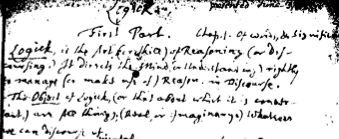 Logick.
First Part. Chap. 1. Of words,
Logick, is the Art (or skill) of Reasoning (or Dis-
coursing.) It directs the Mind, (or Understanding) rightly
to manage (or make use of) Reason, in Discourse.
The Object of Logick, (or that about which it is
are All things, (Real, or Imaginary,) Whatsoever
we can discourse of.